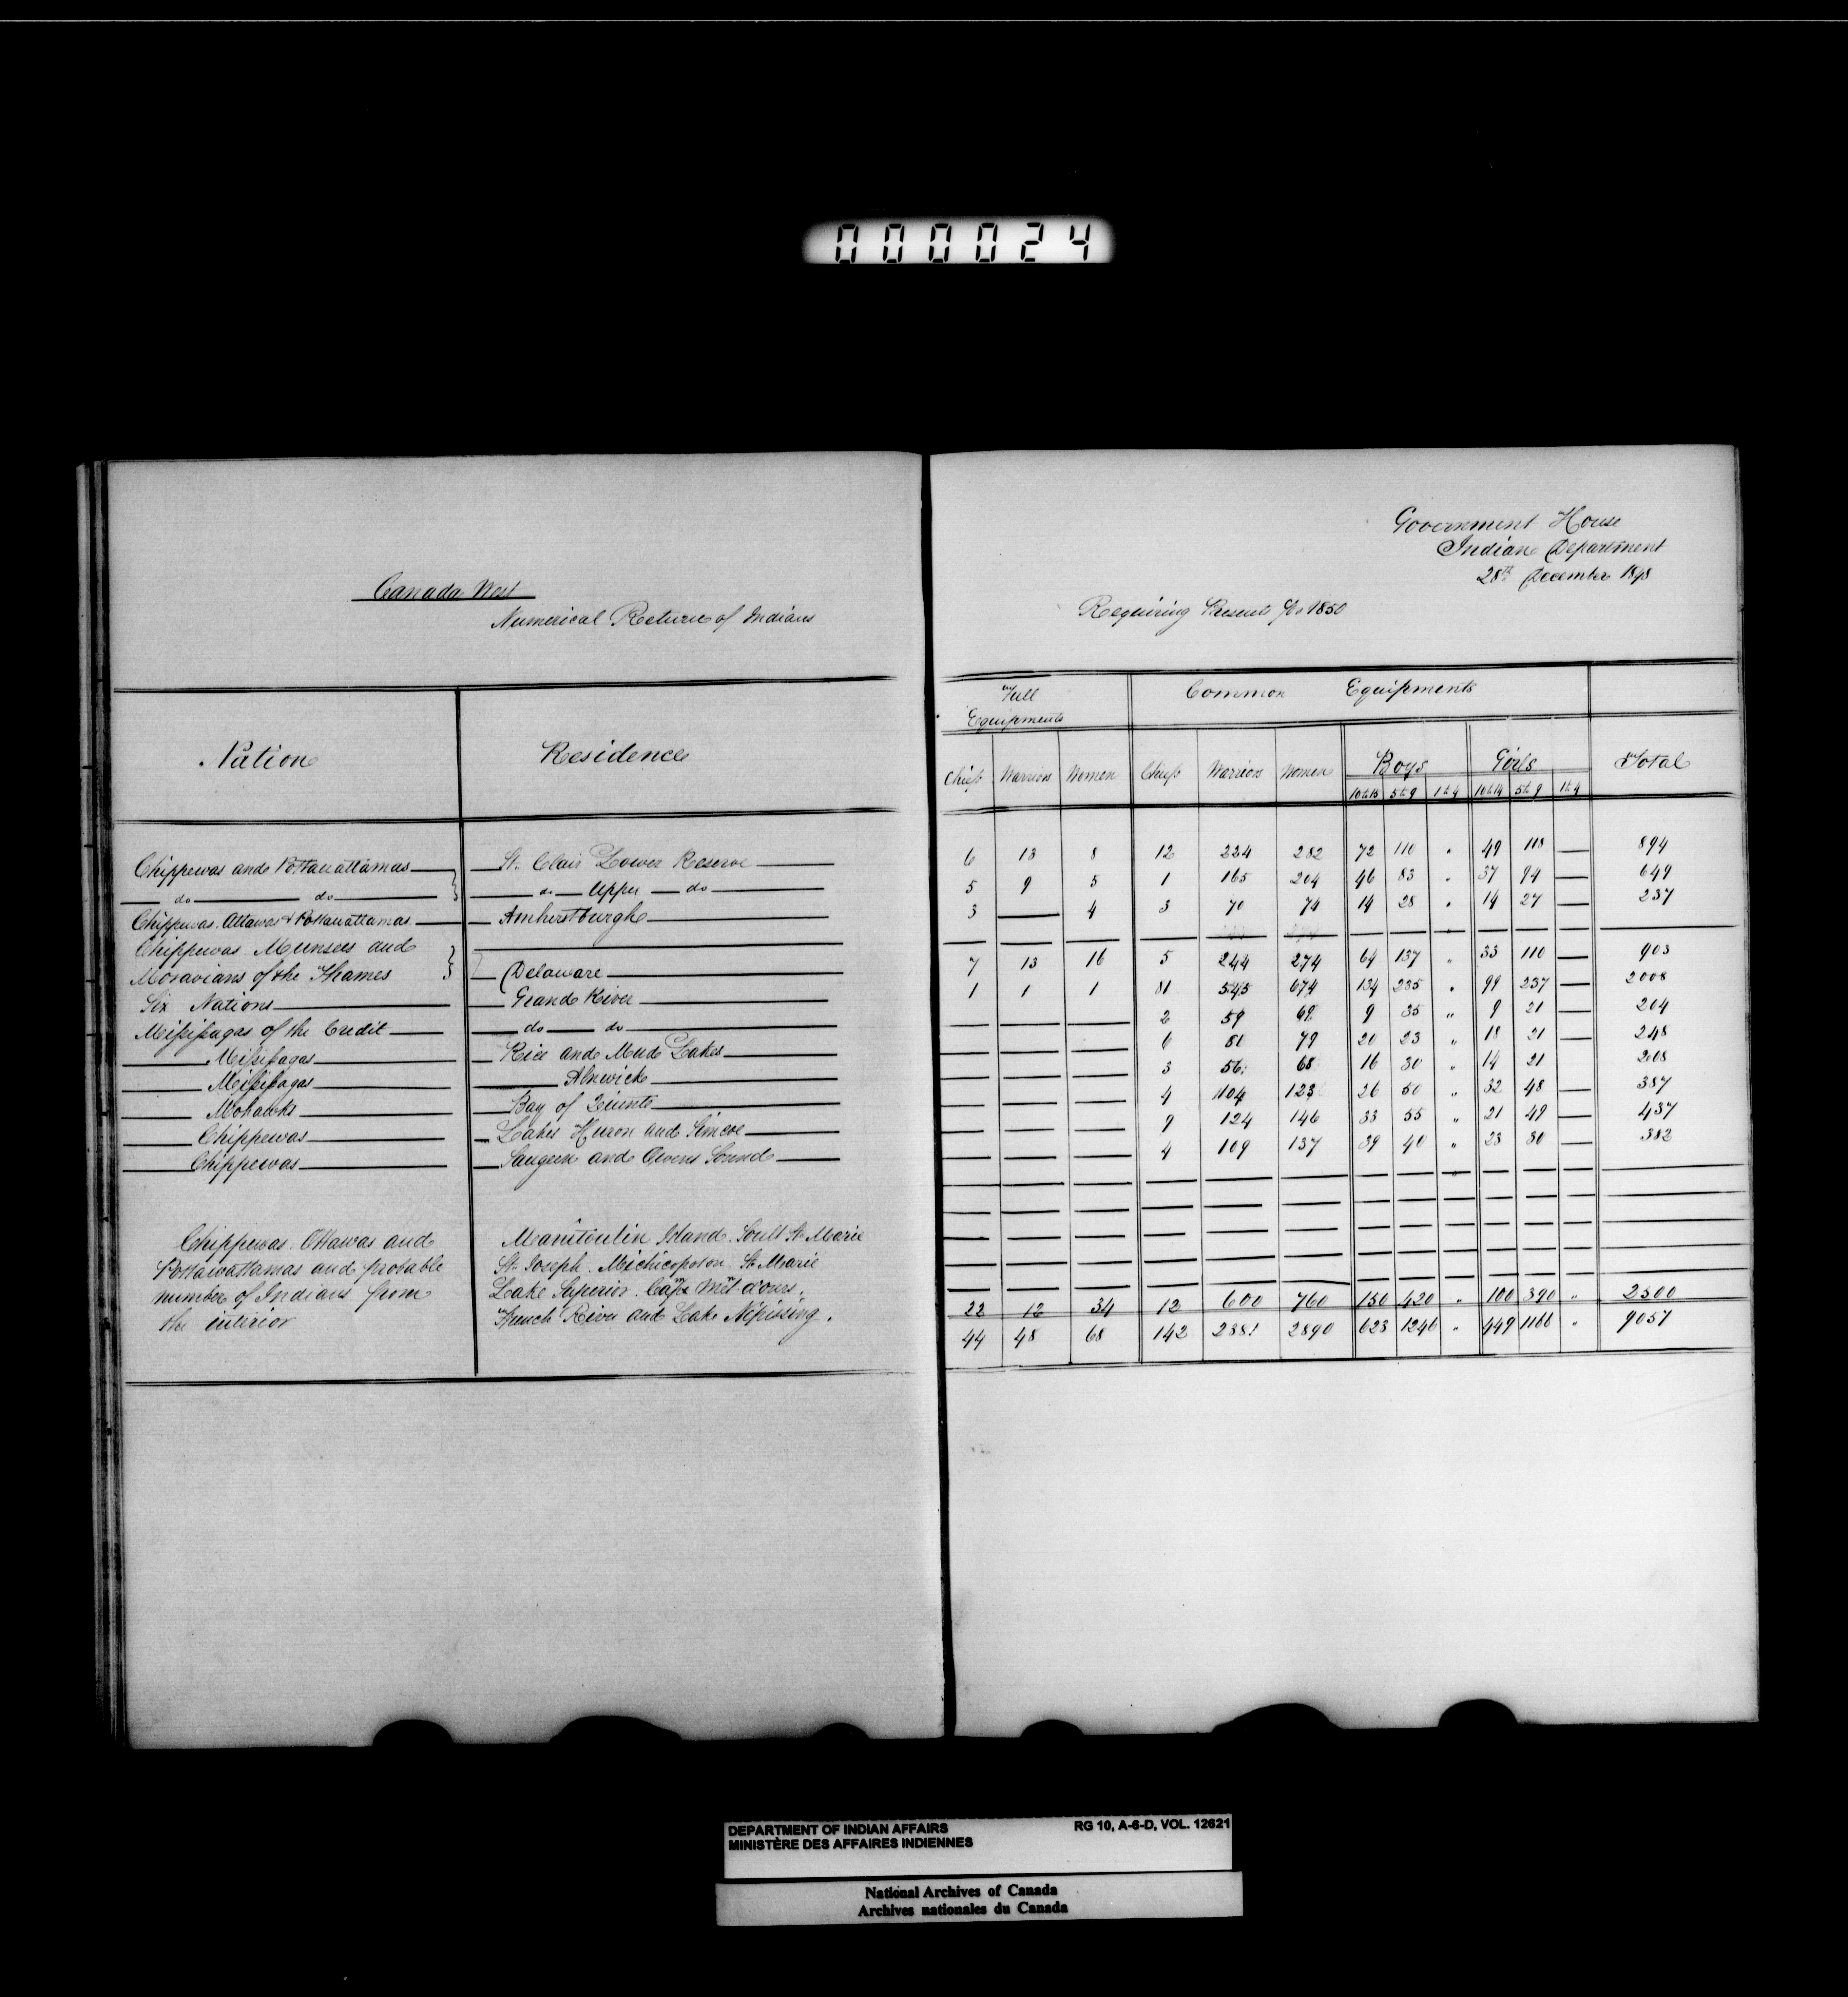 000024
Canada West
Numerical Return of Indians
Government House
Indian Department
28th December 1848
Requiring Presents for 1850
Nation Residence
Full Equipments Common Equipments
Chiefs Warriors Women Chiefs Warriors Women Boys Girls Total
10 to 15 5 to 9 1 to 4 10 to 14 5 to 9 1 to 4
Chippewas and Pottawattamas St. Clair Lower Reserve 6 13 8 12 224 282 72 110 " 49 118 — 894
do do do Upper do 5 9 5 1 165 204 46 83 " 37 94 — 649
Chippewas Ottawas & Pottawattamas Amherstburgh 3 — 4 3 70 74 14 28 " 14 27 — 237
Chippewas Munsees and
Moravians of the Thames Delaware 7 13 16 5 244 274 64 137 " 33 110 — 903
Six Nations Grand River 1 1 1 81 545 674 134 235 " 99 237 — 2008
Missisagas of the Credit do do — — — 2 59 69 9 35 " 9 21 — 204
Missisagas Rice and Mud Lakes — — — 6 81 79 20 23 " 18 21 — 248
Missisagas Alnwick — — — 3 56 68 16 30 " 14 21 208
Mohawks Bay of Quinte — — — 4 104 123 26 50 " 32 48 — 387
Chippewas Lakes Huron and Simcoe — — — 9 124 146 33 55 " 21 49 — 437
Chippewas Saugeen and Owens Sound — — — 4 109 137 39 40 " 23 30 — 382
Chippewas. Ottawas and Manitoulin Island. Soult St Marie
Pottawattamas and probable St. Joseph. Michicopoton. St Marie
number of Indians from Lake Superior. Cape Met d'ours.
the interior French River and Lake Nipissing. 22 12 34 12 600 760 150 420 " 100 390 " 2500
44 48 68 142 2381 2890 623 1246 " 449 1166 " 9057
DEPARTMENT OF INDIAN AFFAIRS RG 10, A-6-D, VOL. 12621
MINISTÈRE DES AFFAIRES INDIENNES
National Archives of Canada
Archives nationales du Canada